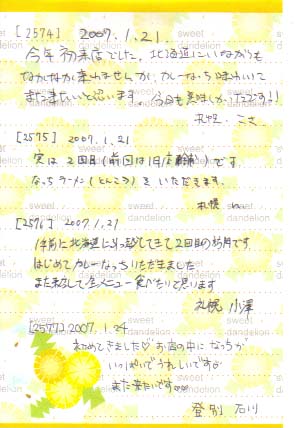 [2574] 2007.1.21.
今年初来店でした。北海道にいながらも
なかなか来れませんが、カレーなっち味わいに
また来たいと思います。今日も美味しかったです!!
札幌
[2575] 2007.1.21
実は2回目(前回は旧店舗)です
なっちラーメン(とんこつ)をいただきます。
札幌
[2576] 2007.1.21
1年前に北海道に引っ越してきて2回目のお店です
はじめてカレーなっちいただきました
また来店して全メニュー食べたいと思います
札幌 小澤
[2577] 2007.1.24
初めてきました♡お店の中になっちが
いっぱいでうれしいです♡
また来たいです♡♡
登別 石川
sweet
dandelion